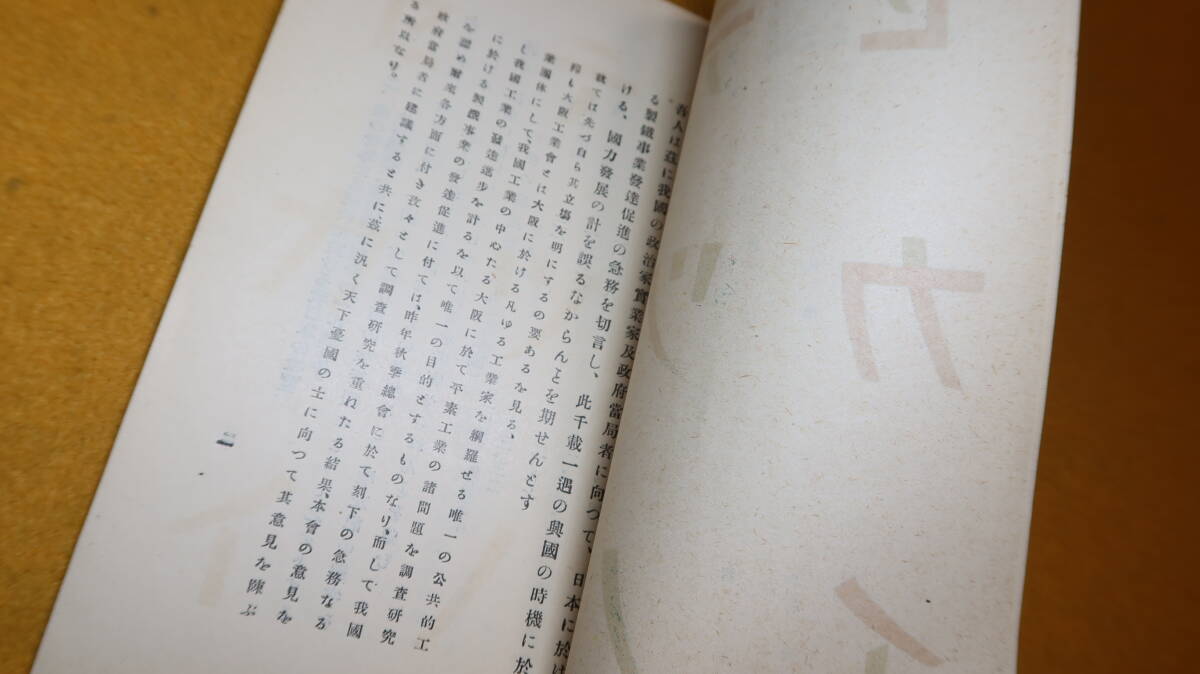 吾人は茲に我國の政治家實業家及政府當局者に向つて、日本に於け
る製鐵事業發達促進の急務を切言し、此千載一遇の興國の時機に於
ける、國力發展の計を誤るなからんとを期せんとす
就ては先づ自ら其立場を明にするの要あるを見る、
抑も大阪工業會とは大阪に於ける凡ゆる工業家を網羅せる唯一の公共的工
業團体にして、我國工業の中心たる大阪に於て平素工業の諸問題を調査研究
し我國工業の發達進歩を計るを以て唯一の目的とするものなり、而して我國
に於ける製鐵事業の發達促進に付ては、昨年秋季總會に於て刻下の急務なる
を認め爾來各方面に付き孜々として調査研究を重ねたる結果、本會の意見を
政府當局者に建議すると共に、茲に汎く天下憂國の士に向つて其意見を陳ぶ
る所以なり。
一